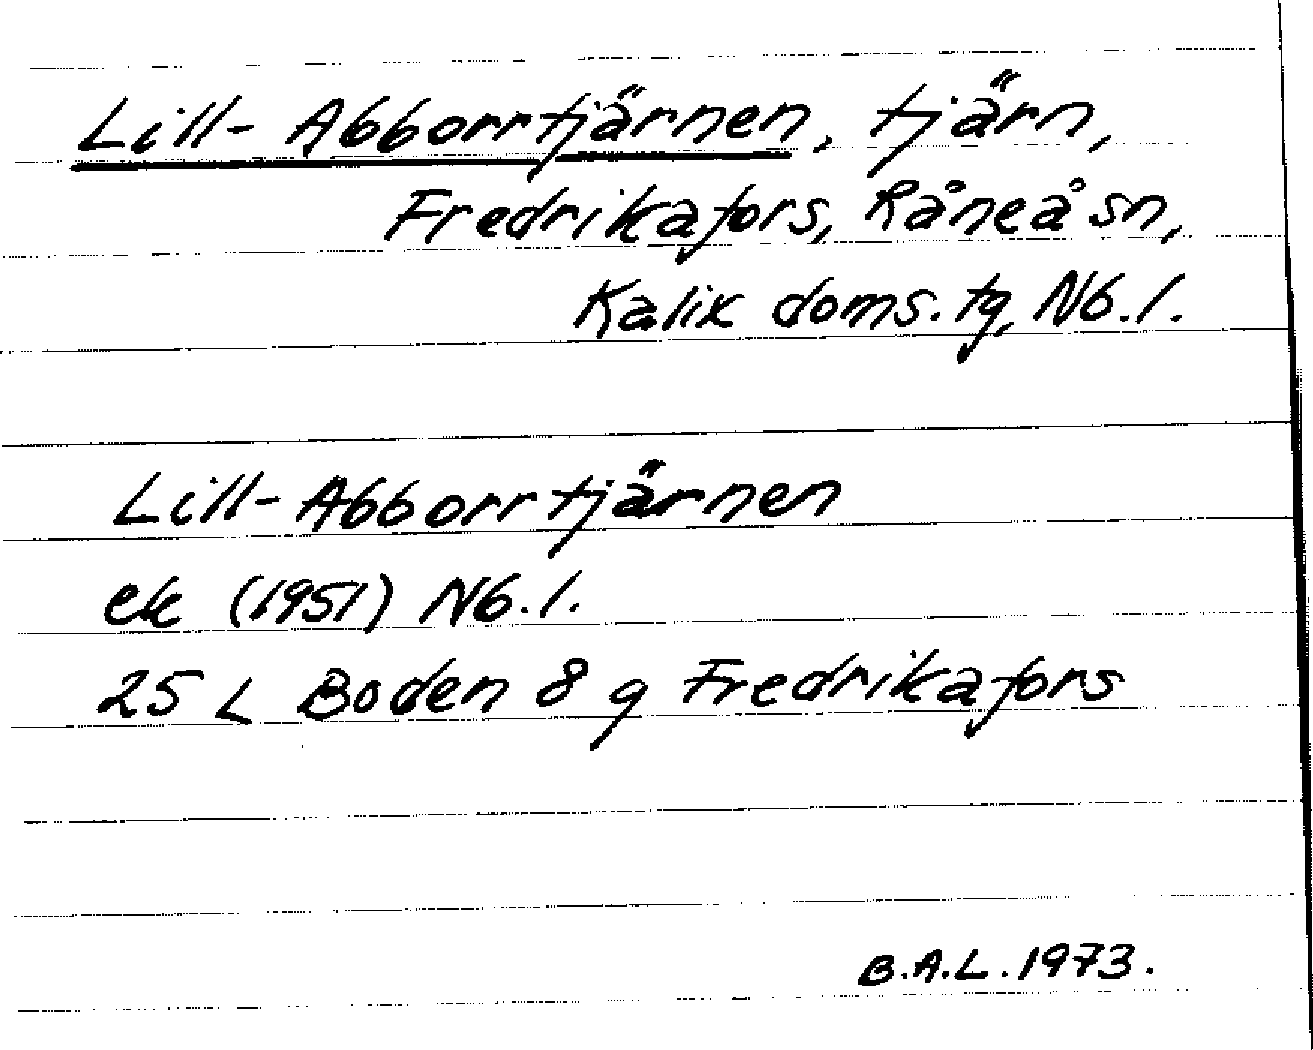 Lill-Abborrtjärnen, tjärn,
Fredrikafors, Råneå sn,
Kalix doms. tg, Nb. l.
Lill-Abborrtjärnen
ek (1951) Nb. l.
25 L Boden 8 g Fredrikafors
B.A.L. 1973.